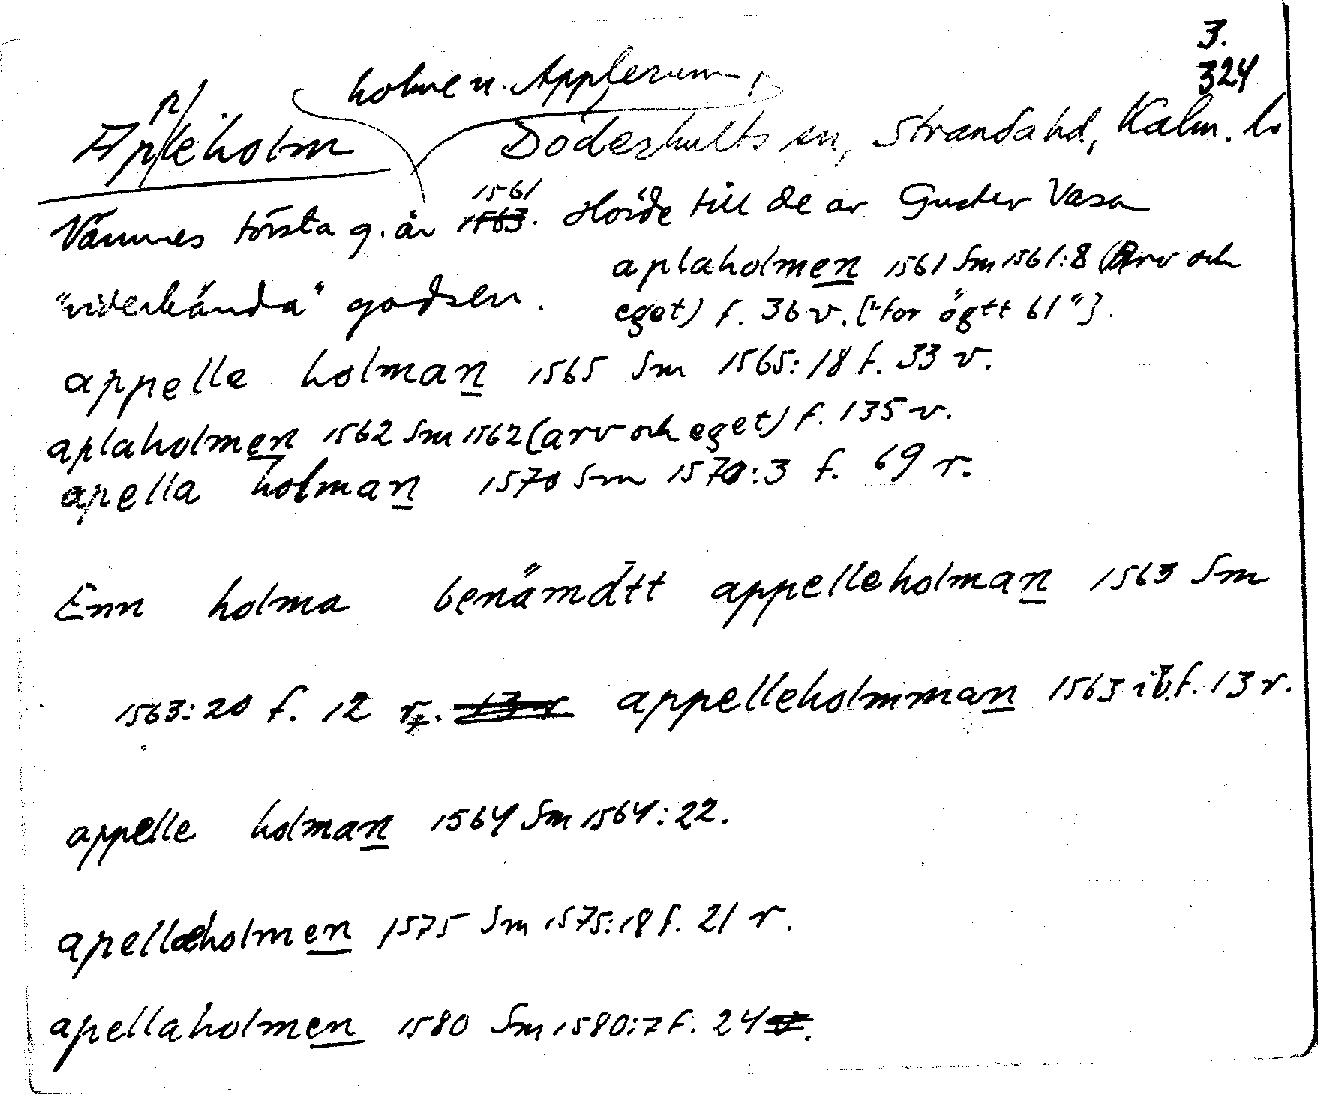 3.
324
holme u. Applerum,
Appleholm Döderhults sn, Stranda hd, Kalm. l.
Nämnes första g. är 1561. Hörde till de av Gustav Vasa
"viderkända" godsen.
aplaholmen 1561 Sm 1561:8 (Arv och
eget) f. 36 v. ["for ögtt 61"].
appelle holman 1565 Sm 1565:18 f. 33 v.
aplaholmen 1562 Sm 1562 (arv och eget) f. 135 v.
apella holman 1570 Sm 1570:3 f. 69 r.
Enn holma benämdtt appelleholman 1563 Sm
1563:20 f. 12 r. 13 r appelleholmman 1563 ib. f. 13 r.
appelle holman 1564 Sm 1564:22.
apellæholmen 1575 Sm 1575:18 f. 21 r.
apellaholmen 1580 Sm 1580:7 f. 24